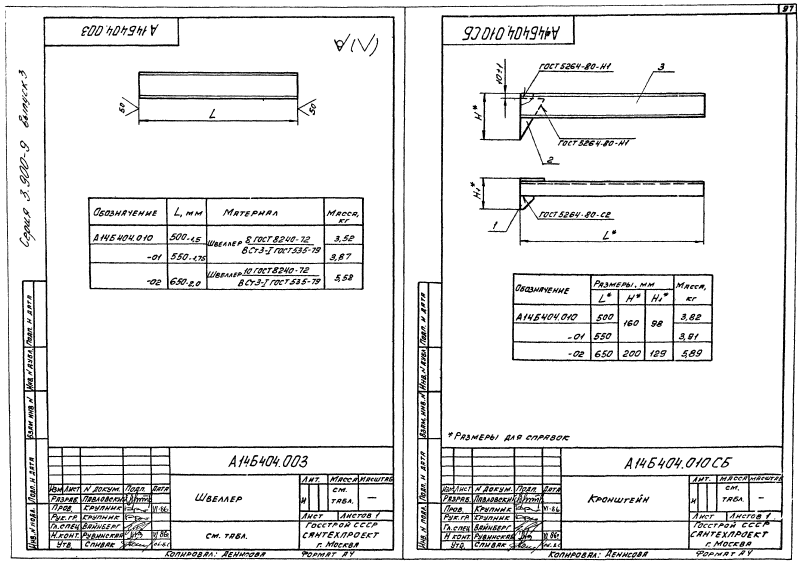 97
А14Б404.003
√(√)
Серия 3.900-9 выпуск 3
50
50
L
Обозначение L, мм Материал Масса, кг
А14Б404.010 500-1,5 Швеллер 8 ГОСТ 8240-72 / ВСт3-I ГОСТ 535-79 3,52
-01 550-1,75 3,87
-02 650-2,0 Швеллер 10 ГОСТ 8240-72 / ВСт3-I ГОСТ 535-79 5,58
Инв. N подл. Подп. и дата Взам. инв. N Инв. N дубл. Подп. и дата
А14Б404.003
Изм Лист N докум. Подп. Дата
Разраб. Павловский
Пров. Крупник VI-86
Рук. гр Крупник
Гл. спец Вайнберг
Н. конт. Рувинская VI 86г
Утв. Спивак
Швеллер
см. табл.
Лит. Масса Масштаб
И см. табл. —
Лист Листов 1
Госстрой СССР
САНТЕХПРОЕКТ
г. Москва
Копировал: Денисова Формат А4
А14Б404.010СБ
ГОСТ 5264-80-Н1
3
10±1
H*
ГОСТ 5264-80-Н1
2
H₁*
ГОСТ 5264-80-С2
1
L*
Обозначение Размеры, мм Масса, кг
L* H* H₁*
А14Б404.010 500 160 98 3,62
-01 550 3,91
-02 650 200 129 5,89
* Размеры для справок
Инв. N подл. Подп. и дата Взам. инв. N Инв. N дубл. Подп. и дата
А14Б404.010СБ
Изм Лист N докум. Подп. Дата
Разраб. Павловский
Пров. Крупник VI-86
Рук. гр Крупник
Гл. спец Вайнберг
Н. конт Рувинская VI 86г
Утв. Спивак
Кронштейн
Лит. Масса Масштаб
И см. табл. —
Лист Листов 1
Госстрой СССР
САНТЕХПРОЕКТ
г. Москва
Копировал: Денисова Формат А4